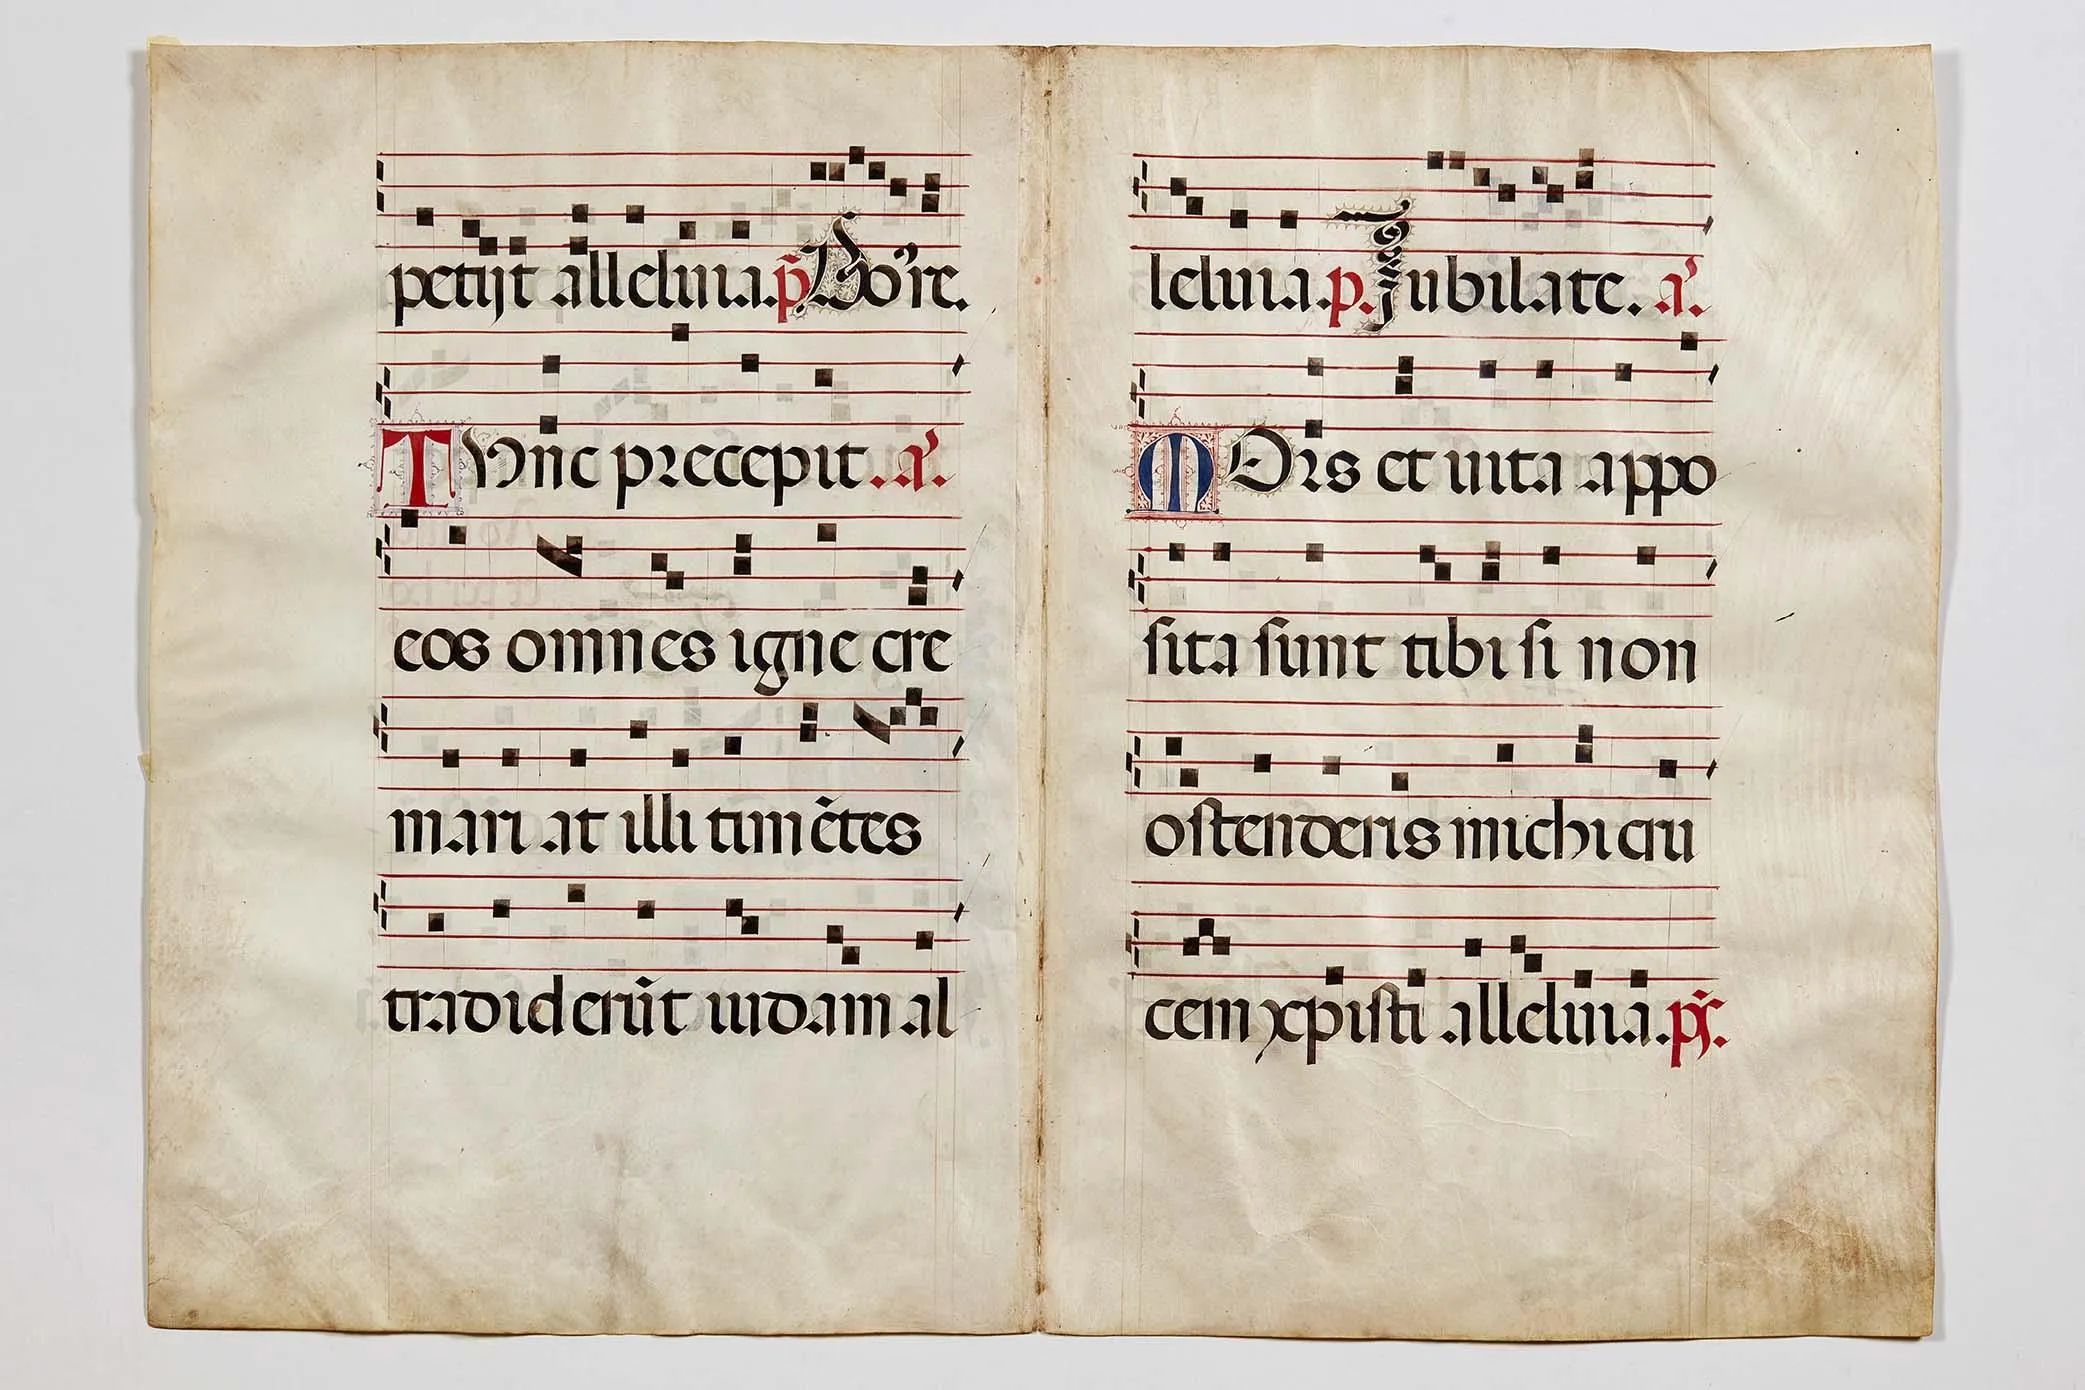 petijt alleluia. p̄ Do're.
Tunc precepit. a'.
eos omnes igne cre
mari at illi timētes
tradiderūt uidam al
leluia. p. Jubilate. a'.
Mors et uita appo
sita sunt tibi si non
ostenderis michi cru
cem xpisti alleluia. ps̄.